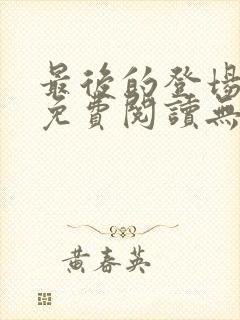 最後的登場
免費閱讀無
黃春英